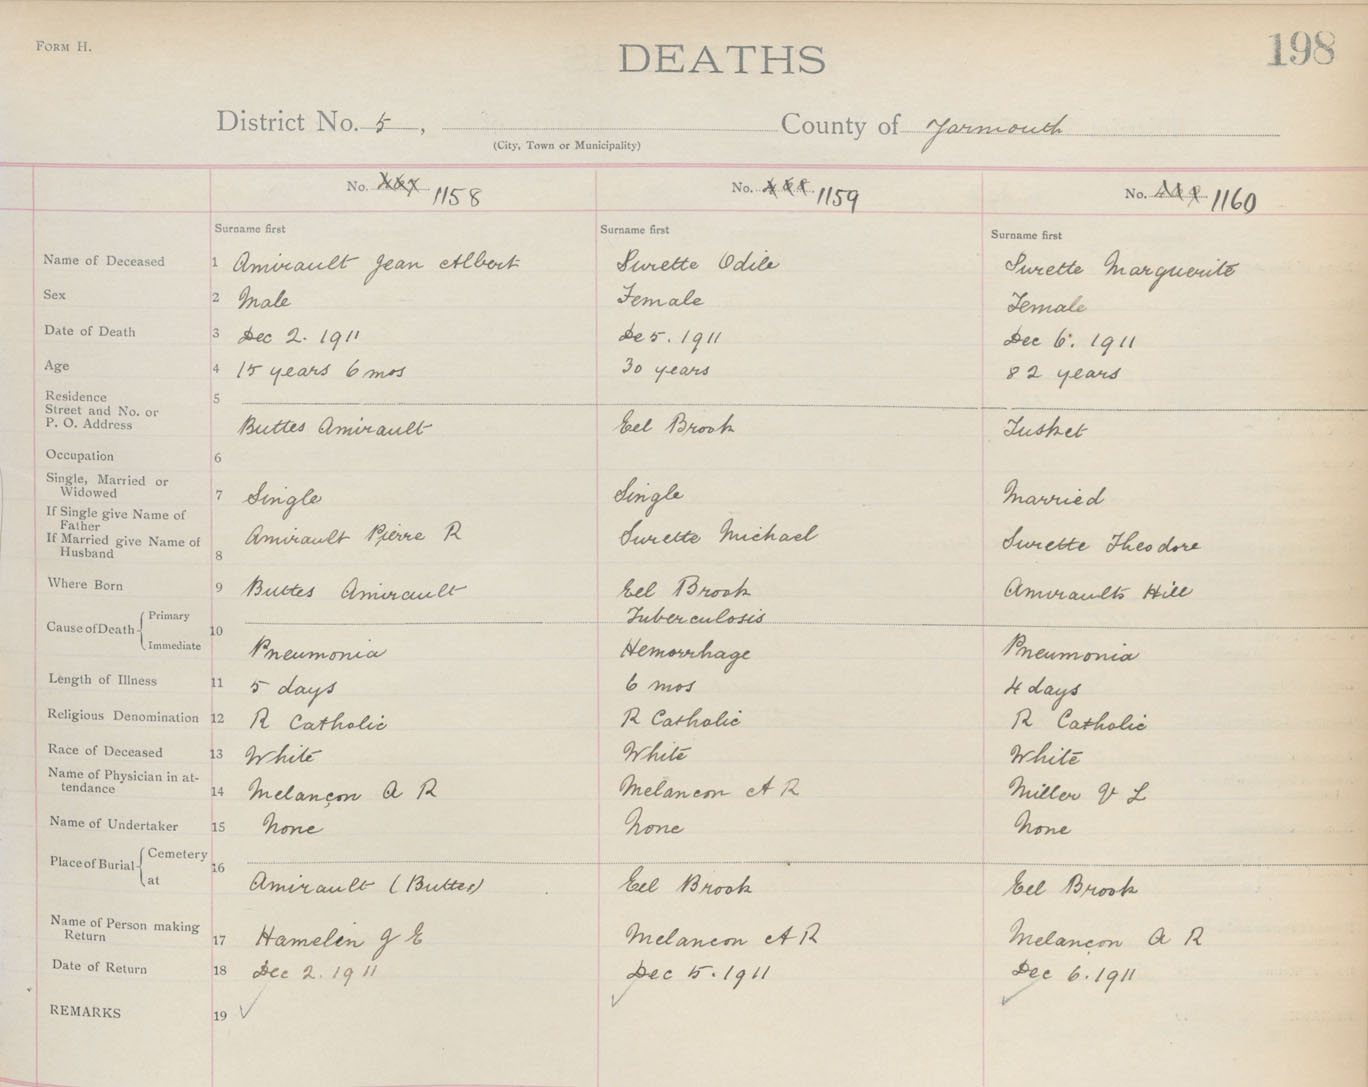 FORM H.
DEATHS
198
District No. 5, County of Yarmouth
(City, Town or Municipality)
No. 1158 No. 1159 No. 1160
Surname first Surname first Surname first
Name of Deceased 1 Amirault Jean Albert Surette Odile Surette Marguerite
Sex 2 Male Female Female
Date of Death 3 Dec 2. 1911 De 5. 1911 Dec 6. 1911
Age 4 15 years 6 mos 30 years 82 years
Residence 5
Street and No. or
P. O. Address Buttes Amirault Eel Brook Tusket
Occupation 6
Single, Married or
Widowed 7 Single Single Married
If Single give Name of
Father
If Married give Name of
Husband 8 Amirault Pierre R Surette Michael Surette Theodore
Where Born 9 Buttes Amirault Eel Brook Amiraults Hill
Cause of Death 10 Primary Tuberculosis
Immediate Pneumonia Hemorrhage Pneumonia
Length of Illness 11 5 days 6 mos 4 days
Religious Denomination 12 R Catholic R Catholic R Catholic
Race of Deceased 13 White White White
Name of Physician in at-
tendance 14 Melançon A R Melancon A R Miller V L
Name of Undertaker 15 None None None
Place of Burial 16 Cemetery
at Amirault (Buttes) Eel Brook Eel Brook
Name of Person making
Return 17 Hamelin J E Melancon A R Melançon A R
Date of Return 18 Dec 2. 1911 Dec 5. 1911 Dec 6. 1911
REMARKS 19